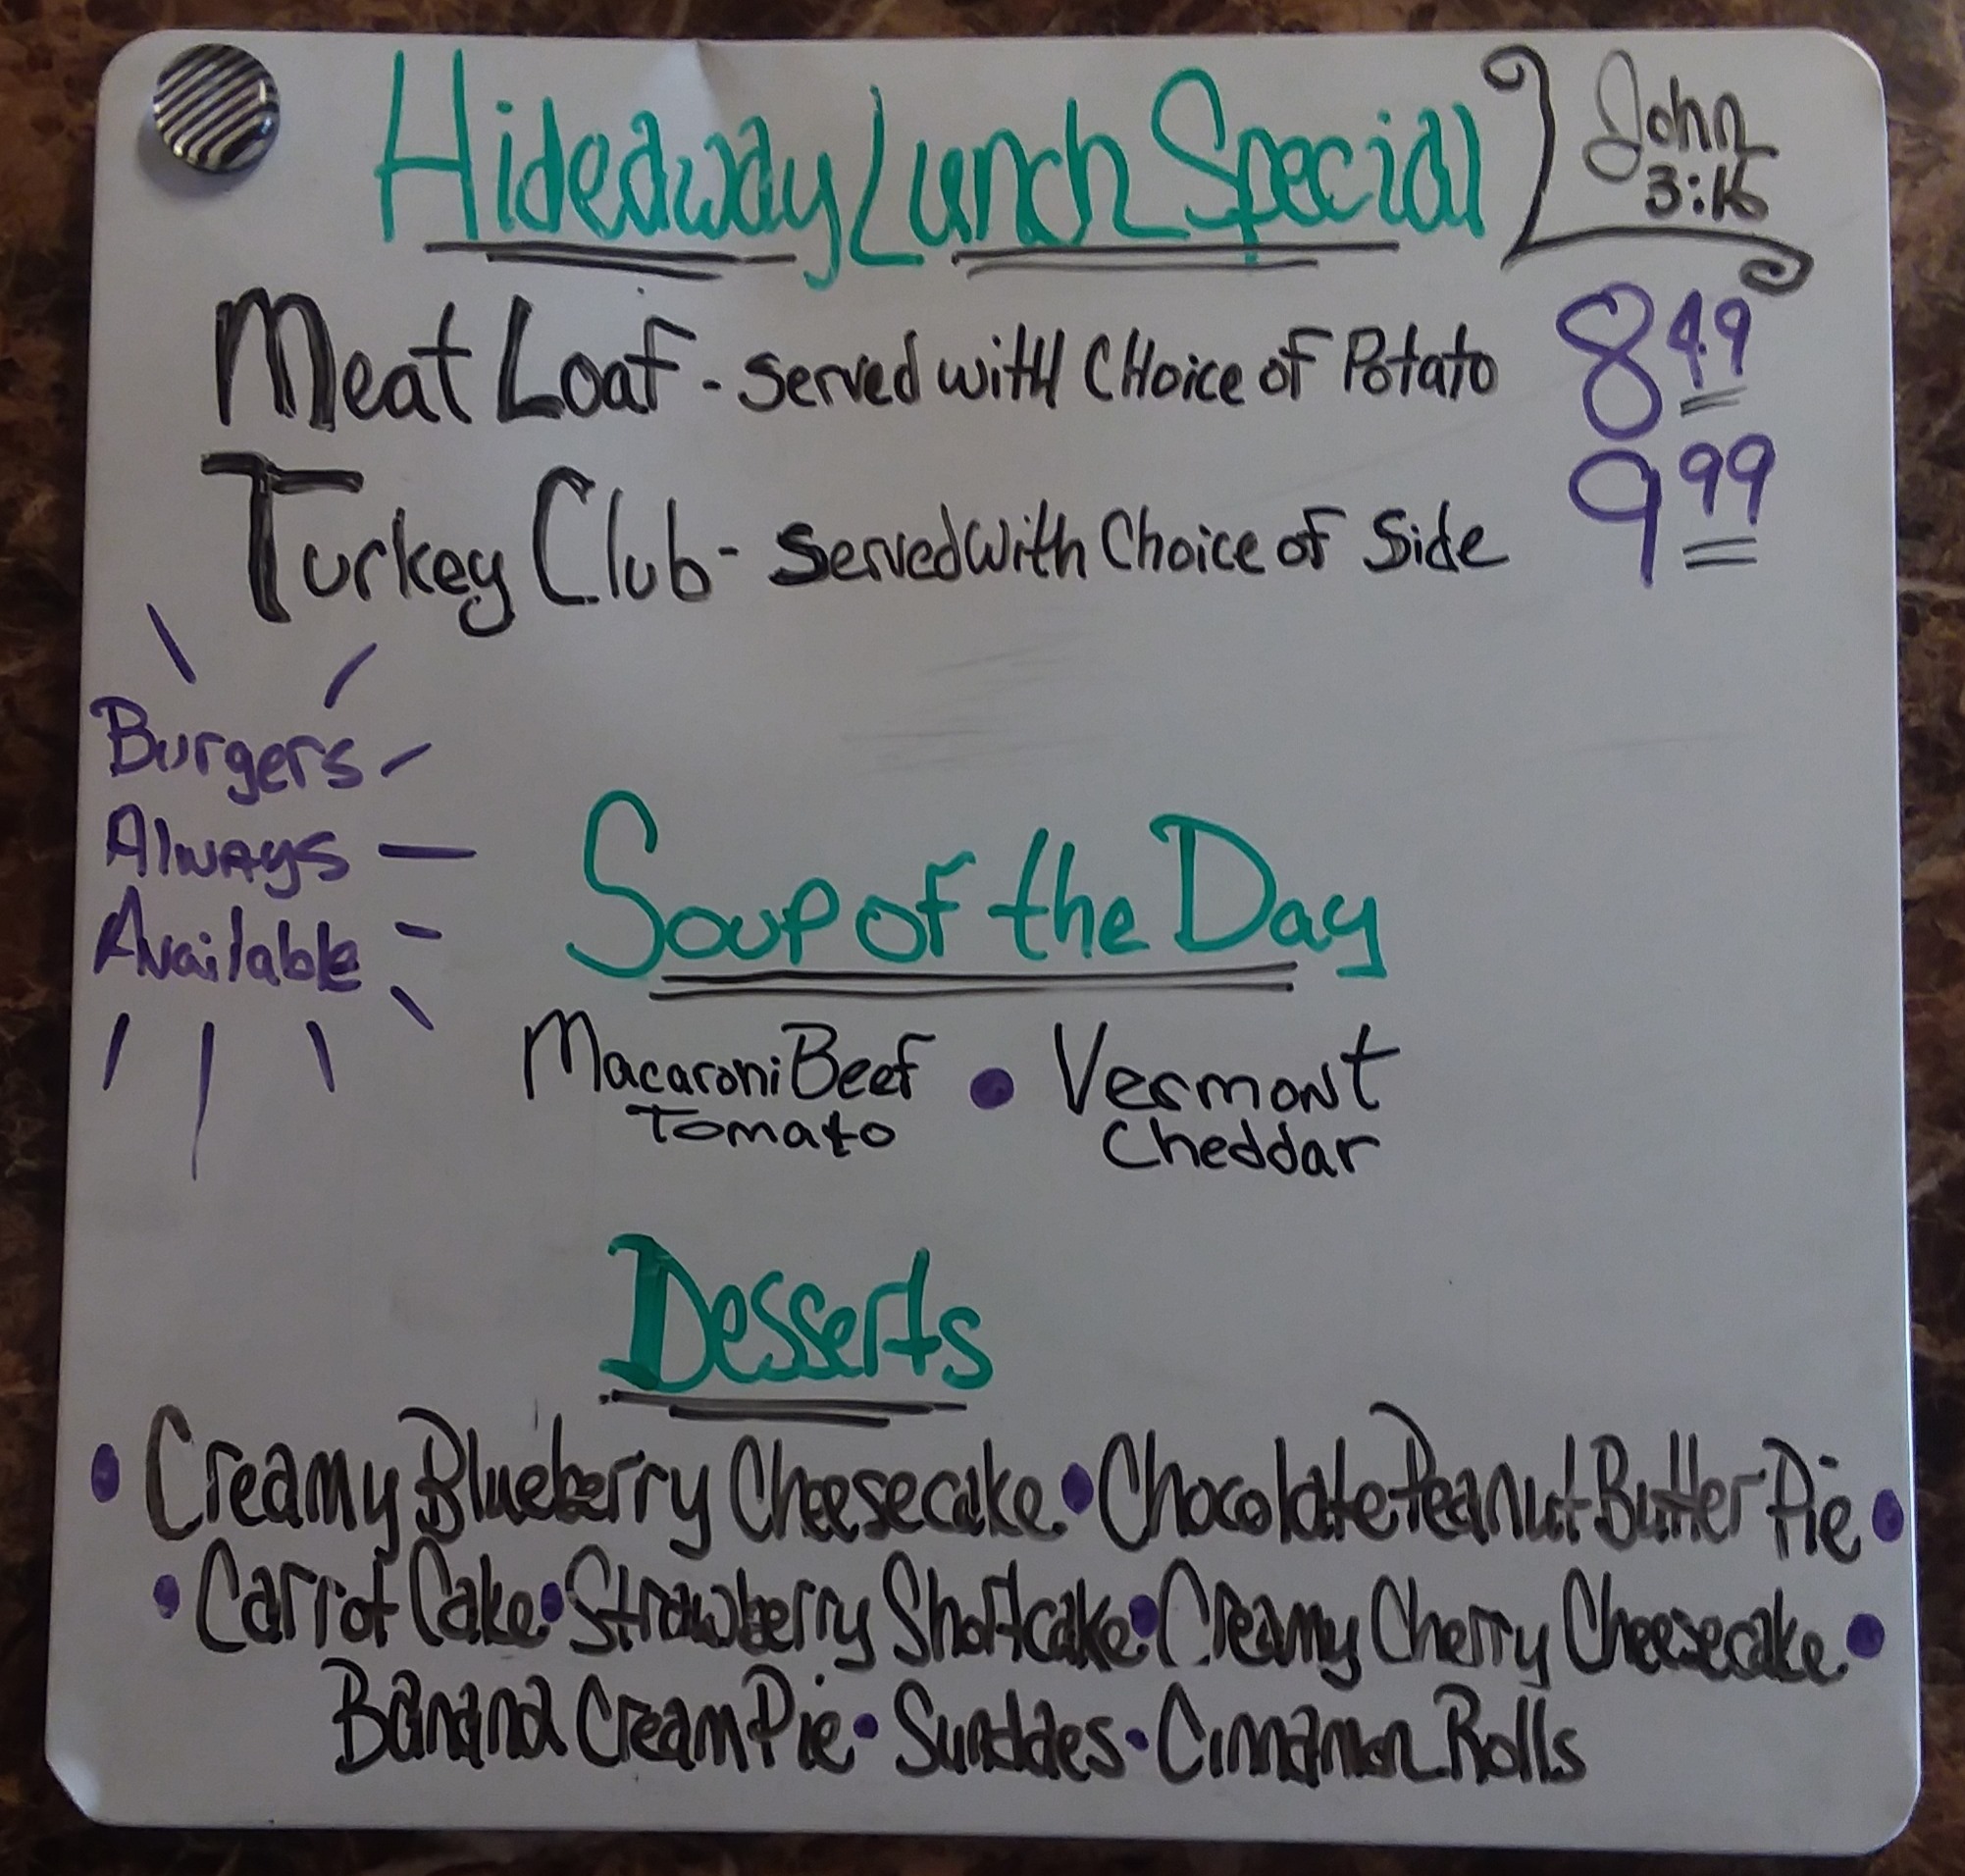 Hideaway Lunch Special
John
3:16
Meat Loaf - Served with Choice of Potato 8 49
Turkey Club - Served with Choice of Side 9 99
Burgers
Always
Available
Soup of the Day
Macaroni Beef • Vermont
Tomato Cheddar
Desserts
• Creamy Blueberry Cheesecake • Chocolate Peanut Butter Pie •
• Carrot Cake • Strawberry Shortcake • Creamy Cherry Cheesecake •
Banana Cream Pie • Sundaes • Cinnamon Rolls